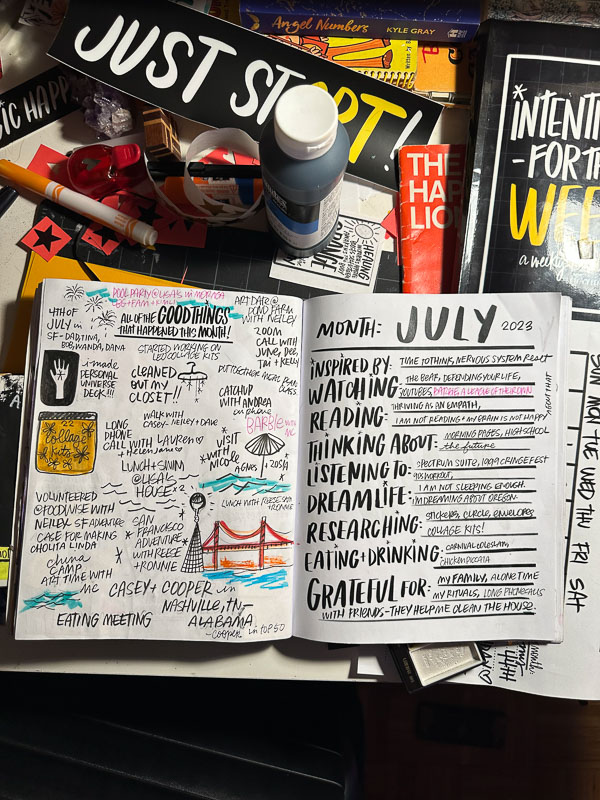 Angel Numbers KYLE GRAY
Written by
JUST START!
IC HAPP
THE
HAP
LION
INTENTI
-FOR TH
WEE
a weekly
HEALING
POOL PARTY @ LISA'S in
4TH OF
JULY in
SF-DAD, TINA,
BOB, WANDA, DANA
ALL OF THE GOOD THINGS
THAT HAPPENED THIS MONTH!
ART DAR @
POND FARM
WITH NEILEY
STARTED WORKING ON
COLLAGE KITS
ZOOM
CALL WITH
JUNE, DEE,
TIM + KELLY
i made
PERSONAL
UNIVERSE
DECK!!!
CLEANED
OUT MY
CLOSET!!
PUT TOGETHER
CLASS
CATCH UP
WITH ANDREA
on phone
BARBIE WITH
22
Collage
Kits
WALK WITH
CASEY + NEILEY + DAVE
LONG
PHONE
CALL WITH LAUREN
+ HELEN JANE
VISIT
WITH
NICOLE
AGNES
LUNCH + SWIM
@ LISA'S
HOUSE x2
LUNCH WITH REESE
+ RONNIE
VOLUNTEERED
@ FOODWISE WITH
NEILEY SF ADVENTURE
CASE FOR MAKING
CHOLITA LINDA
SAN
FRANCISCO
ADVENTURE
WITH REESE
+ RONNIE
china
CAMP
ART TIME WITH
me
CASEY + COOPER in
NASHVILLE, TN-
ALABAMA
-COOPER in TOP 50
EATING MEETING
MONTH: JULY 2023
INSPIRED BY: TIME TO THINK, NERVOUS SYSTEM REACT
WATCHING: THE BEAR, DEFENDING YOUR LIFE,
YOUTUBES, BARBIE, A LEAGUE OF THEIR OWN
READING: THRIVING AS AN EMPATH,
I AM NOT READING + MY BRAIN IS NOT HAPPY
ABOUT THAT
THINKING ABOUT: MORNING PAGES, HIGH SCHOOL
the future
LISTENING TO: SPECTRUM SUITE, 1099 CRINGE FEST
DREAM LIFE: I AM NOT SLEEPING ENOUGH.
I'M DREAMING ABOUT OREGON
RESEARCHING: STICKERS, CIRCLE, ENVELOPES
COLLAGE KITS!
EATING + DRINKING: CARNIVAL COLESLAW,
CHICKEN PICCATA
GRATEFUL FOR: MY FAMILY, ALONE TIME
MY RITUALS, LONG PHONE CALLS
WITH FRIENDS-THEY HELP ME CLEAN THE HOUSE.
SUN MON TUE WED THU FRI SAT